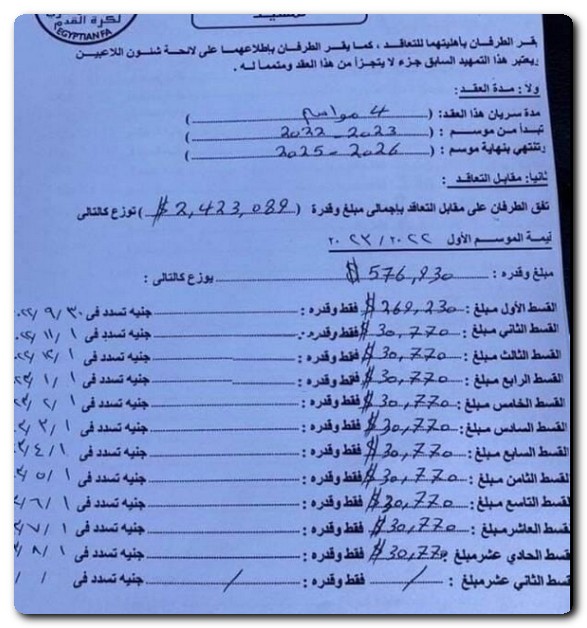 لكرة القدم
EGYPTIAN FA
تمهيد
يقر الطرفان بأهليتهما للتعاقد ، كما يقر الطرفان بإطلاعهما على لائحة شئون اللاعبين
يعتبر هذا التمهيد السابق جزء لا يتجزأ من هذا العقد ومتمما له .
ولا : مدة العقد :
مدة سريان هذا العقد: ( 4 مواسم )
تبدأ من موسم : ( 2022 - 2023 )
تنتهي بنهاية موسم : ( 2025 - 2026 )
ثانيا: مقابل التعاقد :
تفق الطرفان على مقابل التعاقد بإجمالى مبلغ وقدرة ( $ 2,423,089 ) توزع كالتالى
يمة الموسم الأول ٢٠٢٢ / ٢٠٢٣
مبلغ وقدره : $ 576,930 يوزع كالتالى :
القسط الأول مبلغ : $ 269,230 فقط وقدره : جنيه تسدد فى ٣٠ / ٩ /
القسط الثاني مبلغ : $ 30,770 فقط وقدره : جنيه تسدد فى ١ / ١١ /
القسط الثالث مبلغ : $ 30,770 فقط وقدره : جنيه تسدد فى ١ / ١٢ /
القسط الرابع مبلغ : $ 30,770 فقط وقدره : جنيه تسدد فى ١ / ١ /
القسط الخامس مبلغ : $ 30,770 فقط وقدره : جنيه تسدد فى ١ / ٢ /
القسط السادس مبلغ : $ 30,770 فقط وقدره : جنيه تسدد فى ١ / ٣ /
القسط السابع مبلغ : $ 30,770 فقط وقدره : جنيه تسدد فى ١ / ٤ /
القسط الثامن مبلغ : $ 30,770 فقط وقدره : جنيه تسدد فى ١ / ٥ /
القسط التاسع مبلغ : $ 30,770 فقط وقدره : جنيه تسدد فى ١ / ٦ /
القسط العاشر مبلغ : $ 30,770 فقط وقدره : جنيه تسدد فى ١ / ٧ /
قسط الحادي عشر مبلغ : $ 30,770 فقط وقدره : جنيه تسدد فى ١ / ٨ /
قسط الثاني عشر مبلغ : / فقط وقدره : / جنيه تسدد فى / /